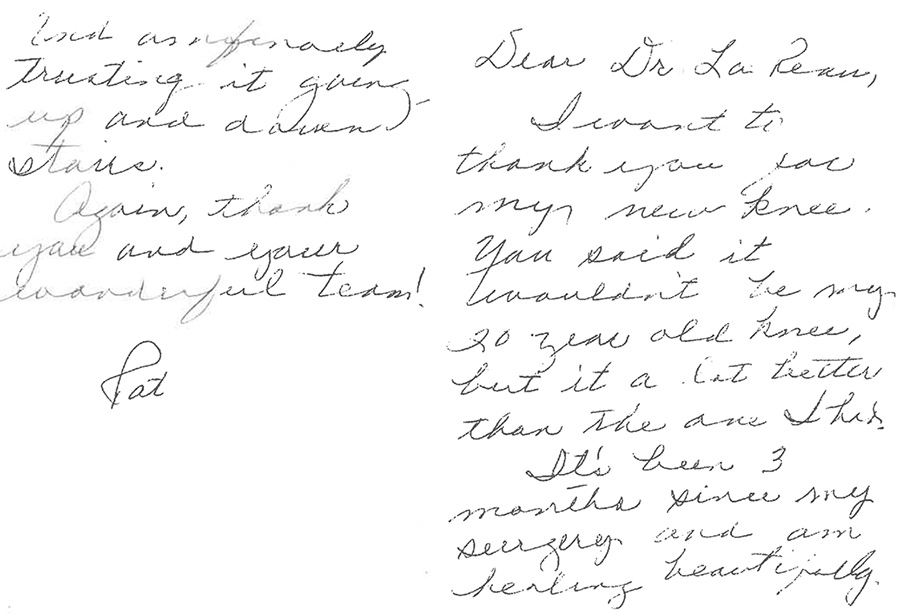 Dear Dr La Reau,
I want to
thank you for
my new knee.
You said it
wouldn't be my
20 year old knee,
but it a lot better
than the one I had.
It's been 3
months since my
surgery and am
healing beautifully.
And am finally
trusting it going
up and down
stairs.
Again, thank
you and your
wonderful team!
Pat